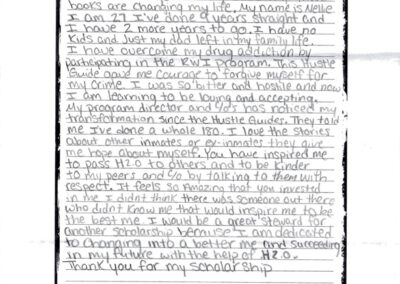 books are changing my life. My name is Nellie
I am 27 I've done 9 years straight and
I have 2 more years to go. I have no
Kids and Just my dad left in my family life.
I have overcome my drug addiction by
participating in the RWI program. This Hustle
Guide gave me courage to forgive myself for
my crime. I was so bitter and hostile and now
I am learning to be loving and accepting.
My program director and c/o's has noticed my
transformation since the Hustle Guides. They told
me I've done a whole 180. I love the stories
about other inmates or ex-inmates they give
me hope about myself. You have inspired me
to pass H2O to others and to be kinder
to my peers and c/o by talking to them with
respect. It feels so amazing that you invested
in me I didnt think there was someone out there
who didnt know me that would inspire me to be
the best me. I would be a great steward for
another scholarship because I am dedicated
to changing into a better me and succeeding
in my future with the help of H2O.
Thank you for my scholarship